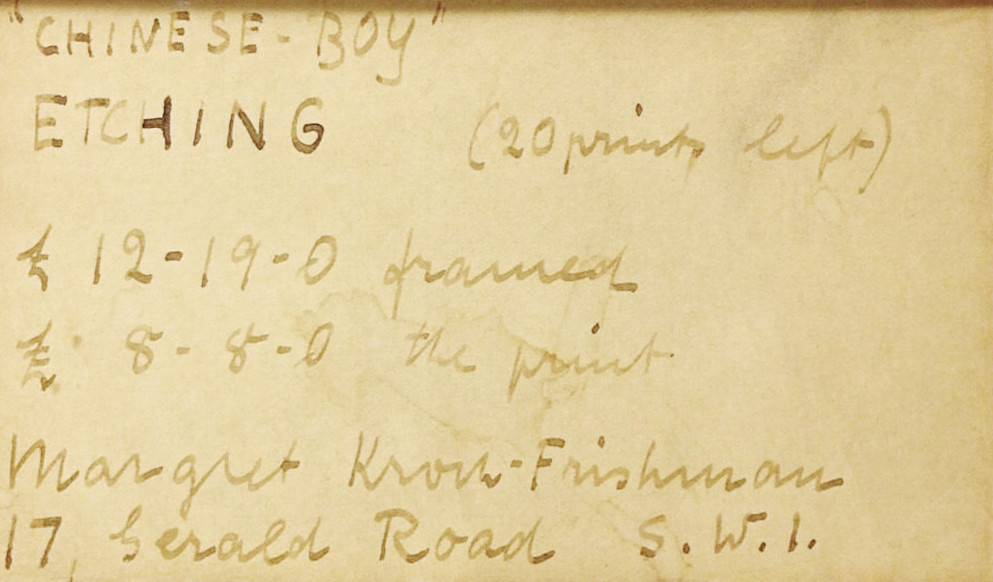 "CHINESE-BOY"
ETCHING (20 prints left)
£ 12-19-0 framed
£ 8-8-0 the print
Margret Kroch-Frishman
17, Gerald Road S.W.1.